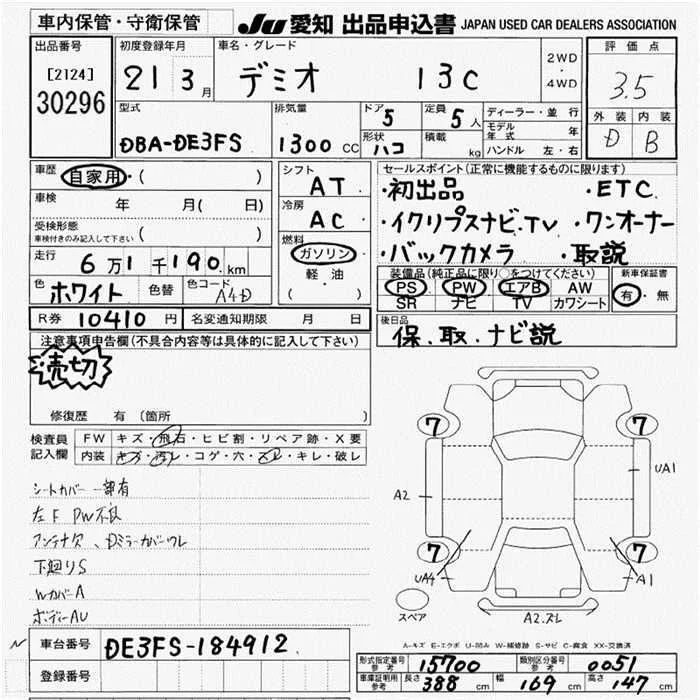 車内保管・守衛保管 JU 愛知 出品申込書 JAPAN USED CAR DEALERS ASSOCIATION
出品番号 [2124] 30296
初度登録年月 21 3月
車名・グレード デミオ 13C
2WD・4WD
評価点 3.5
外装 D 内装 B
型式 DBA-DE3FS
排気量 1300 CC
ドア 5 定員 5人
形状 ハコ 積載 kg
ディーラー・並行
モデル年式 年
ハンドル 左・右
車歴 自家用・( )
車検 年 月( 日)
受検形態
車検付きのみ記入して下さい ( )
走行 6万1千190km
色 ホワイト 色替 色コード A4D
シフト AT
冷房 AC
燃料 ガソリン・軽油
( )
セールスポイント(正常に機能するものに限ります)
・初出品 ・ETC
・イクリプスナビ・TV ・ワンオーナー
・バックカメラ ・取説
装備品(純正品に限り○をつけてください)
PS PW エアB AW
SR ナビ TV カワシート
新車保証書 有・無
R券 10410円 名変通知期限 月 日
後日品
保.取.ナビ説
注意事項申告欄(不具合内容等は具体的に記入して下さい)
売切
修復歴 有(箇所 )
検査員記入欄 FW キズ・飛石・ヒビ割・リペア跡・X要
内装 キズ・汚レ・コゲ・穴・スレ・キレ・破レ
シートカバー一部有
左F PW不良
アンテナ欠、Dミラーカバーワレ
下廻りS
WカバーA
ボディーAU
7 7
A2 UA1
7 7
UA4 A1
スペア A2.ズレ
A-キズ E-エクボ U-凹み W-補修跡 S-サビ C-腐食 XX-交換済
N 車台番号 DE3FS-184912
登録番号
形式指定番号 参考 15700 類別区分番号 参考 0051
車庫証明用 参考 長さ 388 cm 幅 169 cm 高さ 147 cm